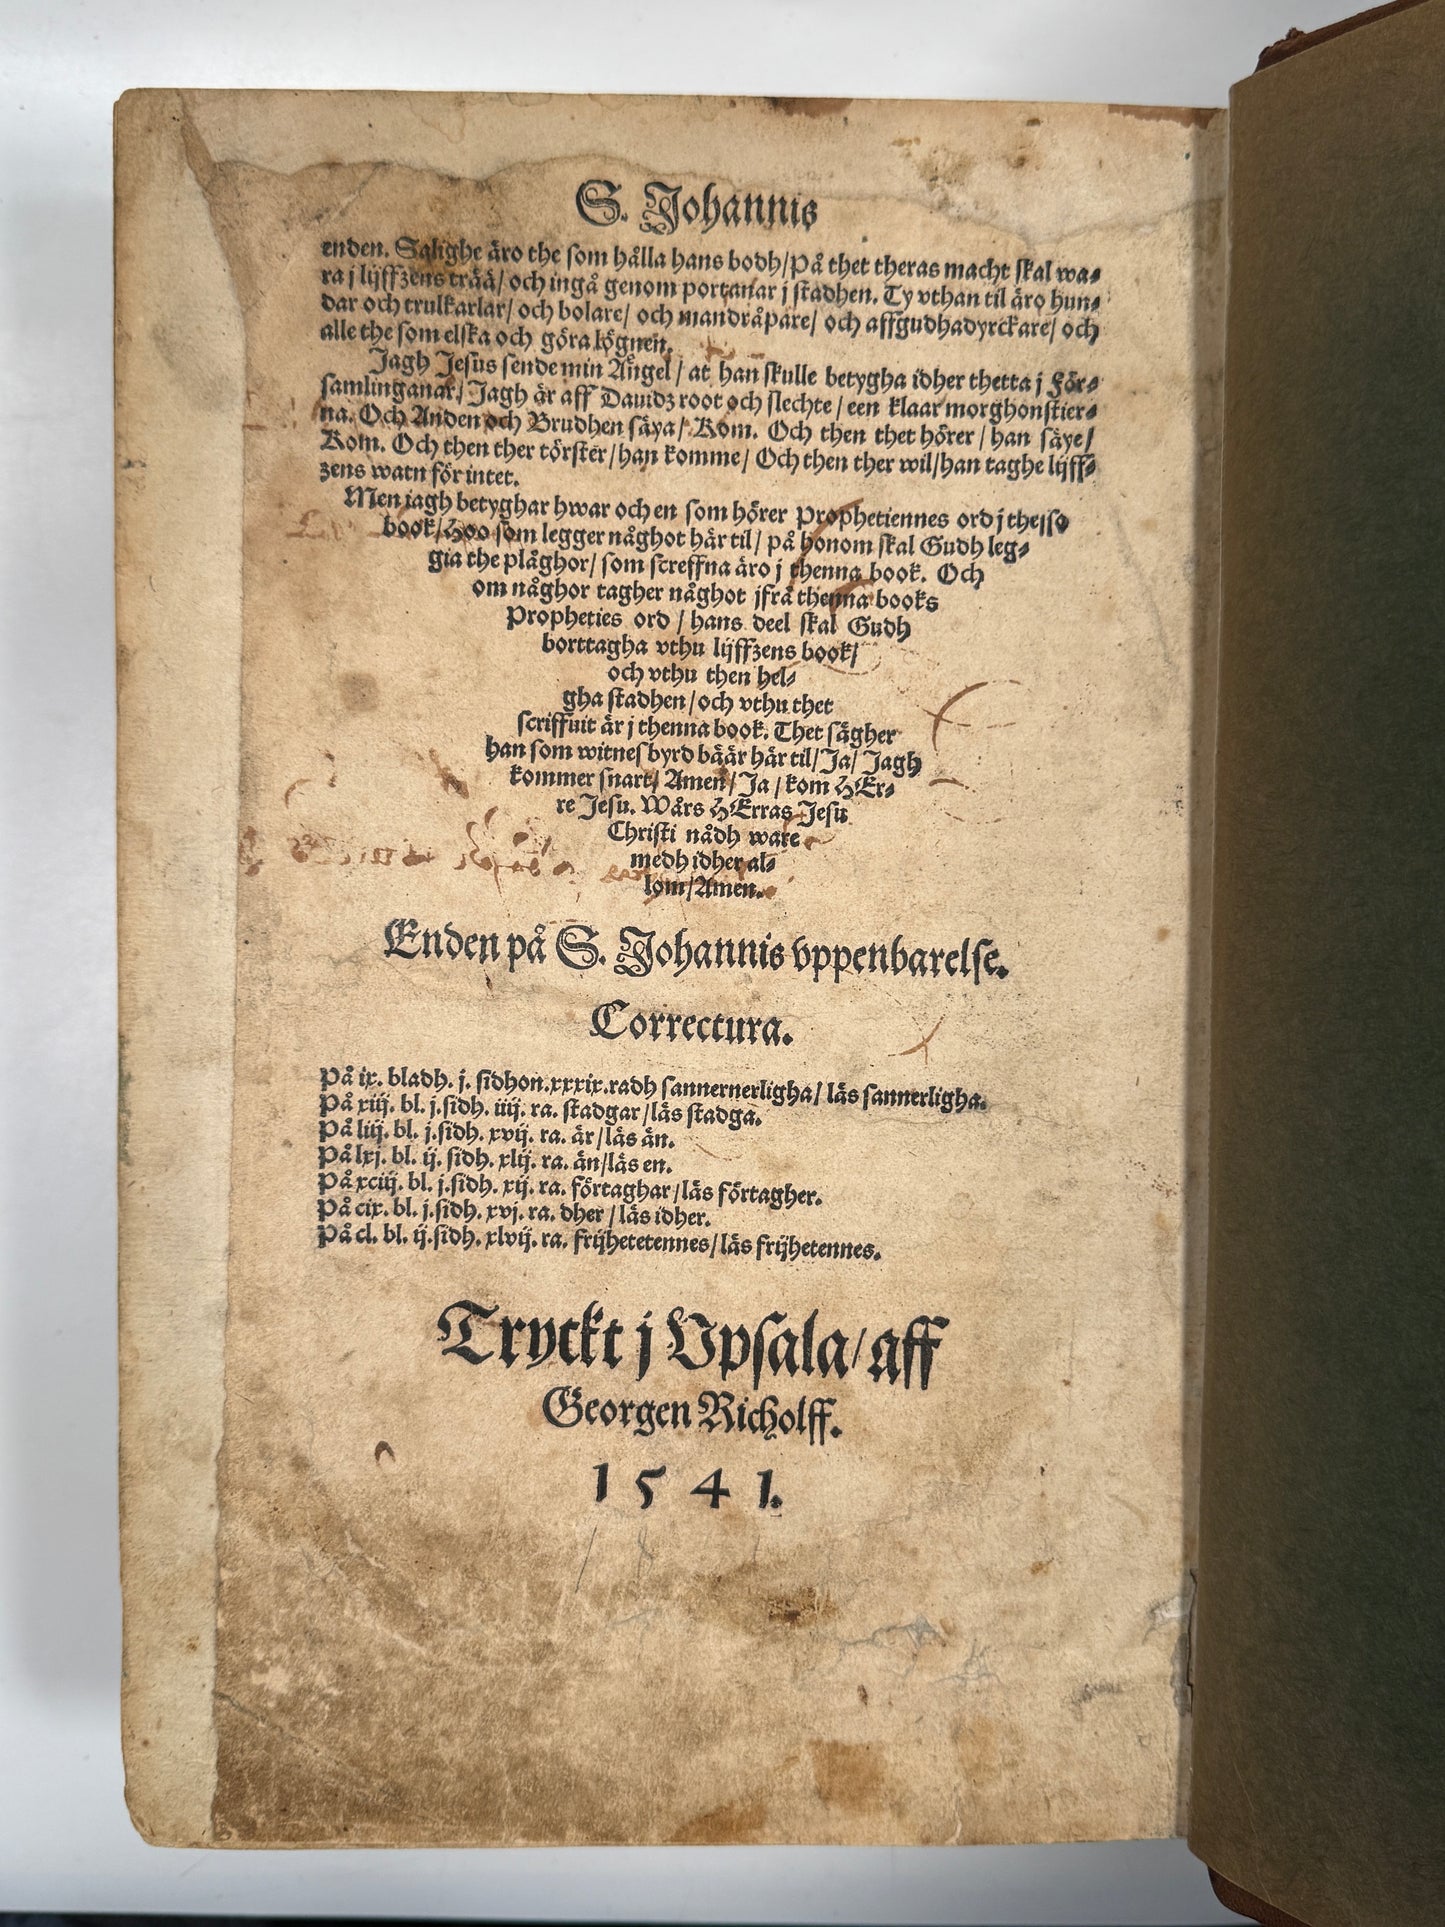 S. Johannis
enden. Salighe äro the som hålla hans bodh/På thet theras macht skal wa⸗
ra j lijffzens trää/ och ingå genom portanar j stadhen. Ty vthan til äro hun⸗
dar och trulkarlar/ och bolare/ och mandråpare/ och affgudhadyrckare/ och
alle the som elska och göra lögnen.
Jagh Jesus sende min Ängel/ at han skulle betygha idher thetta j För⸗
samlinganar/ Jagh är aff Dauidz root och slechte/ een klaar morghonstier⸗
na. Och Anden och Brudhen säya/ Kom. Och then thet hörer/ han säye/
Kom. Och then ther törster/han komme/ Och then ther wil/han taghe lijff⸗
zens watn för intet.
Men jagh betyghar hwar och en som hörer Prophetiennes ord j thesso
book/Hoo som legger någhot här til/ på honom skal Gudh leg⸗
gia the plåghor/ som screffna äro j thenna book. Och
om någhor tagher någhot jfrå thenna books
Propheties ord/ hans deel skal Gudh
borttagha vthu lijffzens book/
och vthu then hel⸗
gha stadhen/och vthu thet
scriffuit är j thenna book. Thet sägher
han som witnesbyrd bäär här til/ Ja/ Jagh
kommer snart/ Amen/ Ja/ kom HEr⸗
re Jesu. Wårs HErras Jesu
Christi nådh ware
medh idher al⸗
lom/Amen.
Enden på S. Johannis vppenbarelse.
Correctura.
På ix. bladh. j. sidhon.xxxix.radh sannernerligha/ läs sannerligha.
På xiij. bl. j.sidh. iiij. ra. stadgar/läs stadga.
På liij. bl. j.sidh. xvij. ra. är/läs än.
På lxj. bl. ij. sidh. xlij. ra. än/läs en.
På xciij. bl. j.sidh. xij. ra. förtaghar/läs förtagher.
På cix. bl. j.sidh. xvj. ra. dher/läs idher.
På cl. bl. ij.sidh. xlvij. ra. frijhetetennes/läs frijhetennes.
Tryckt j Vpsala/aff
Georgen Richolff.
1541.